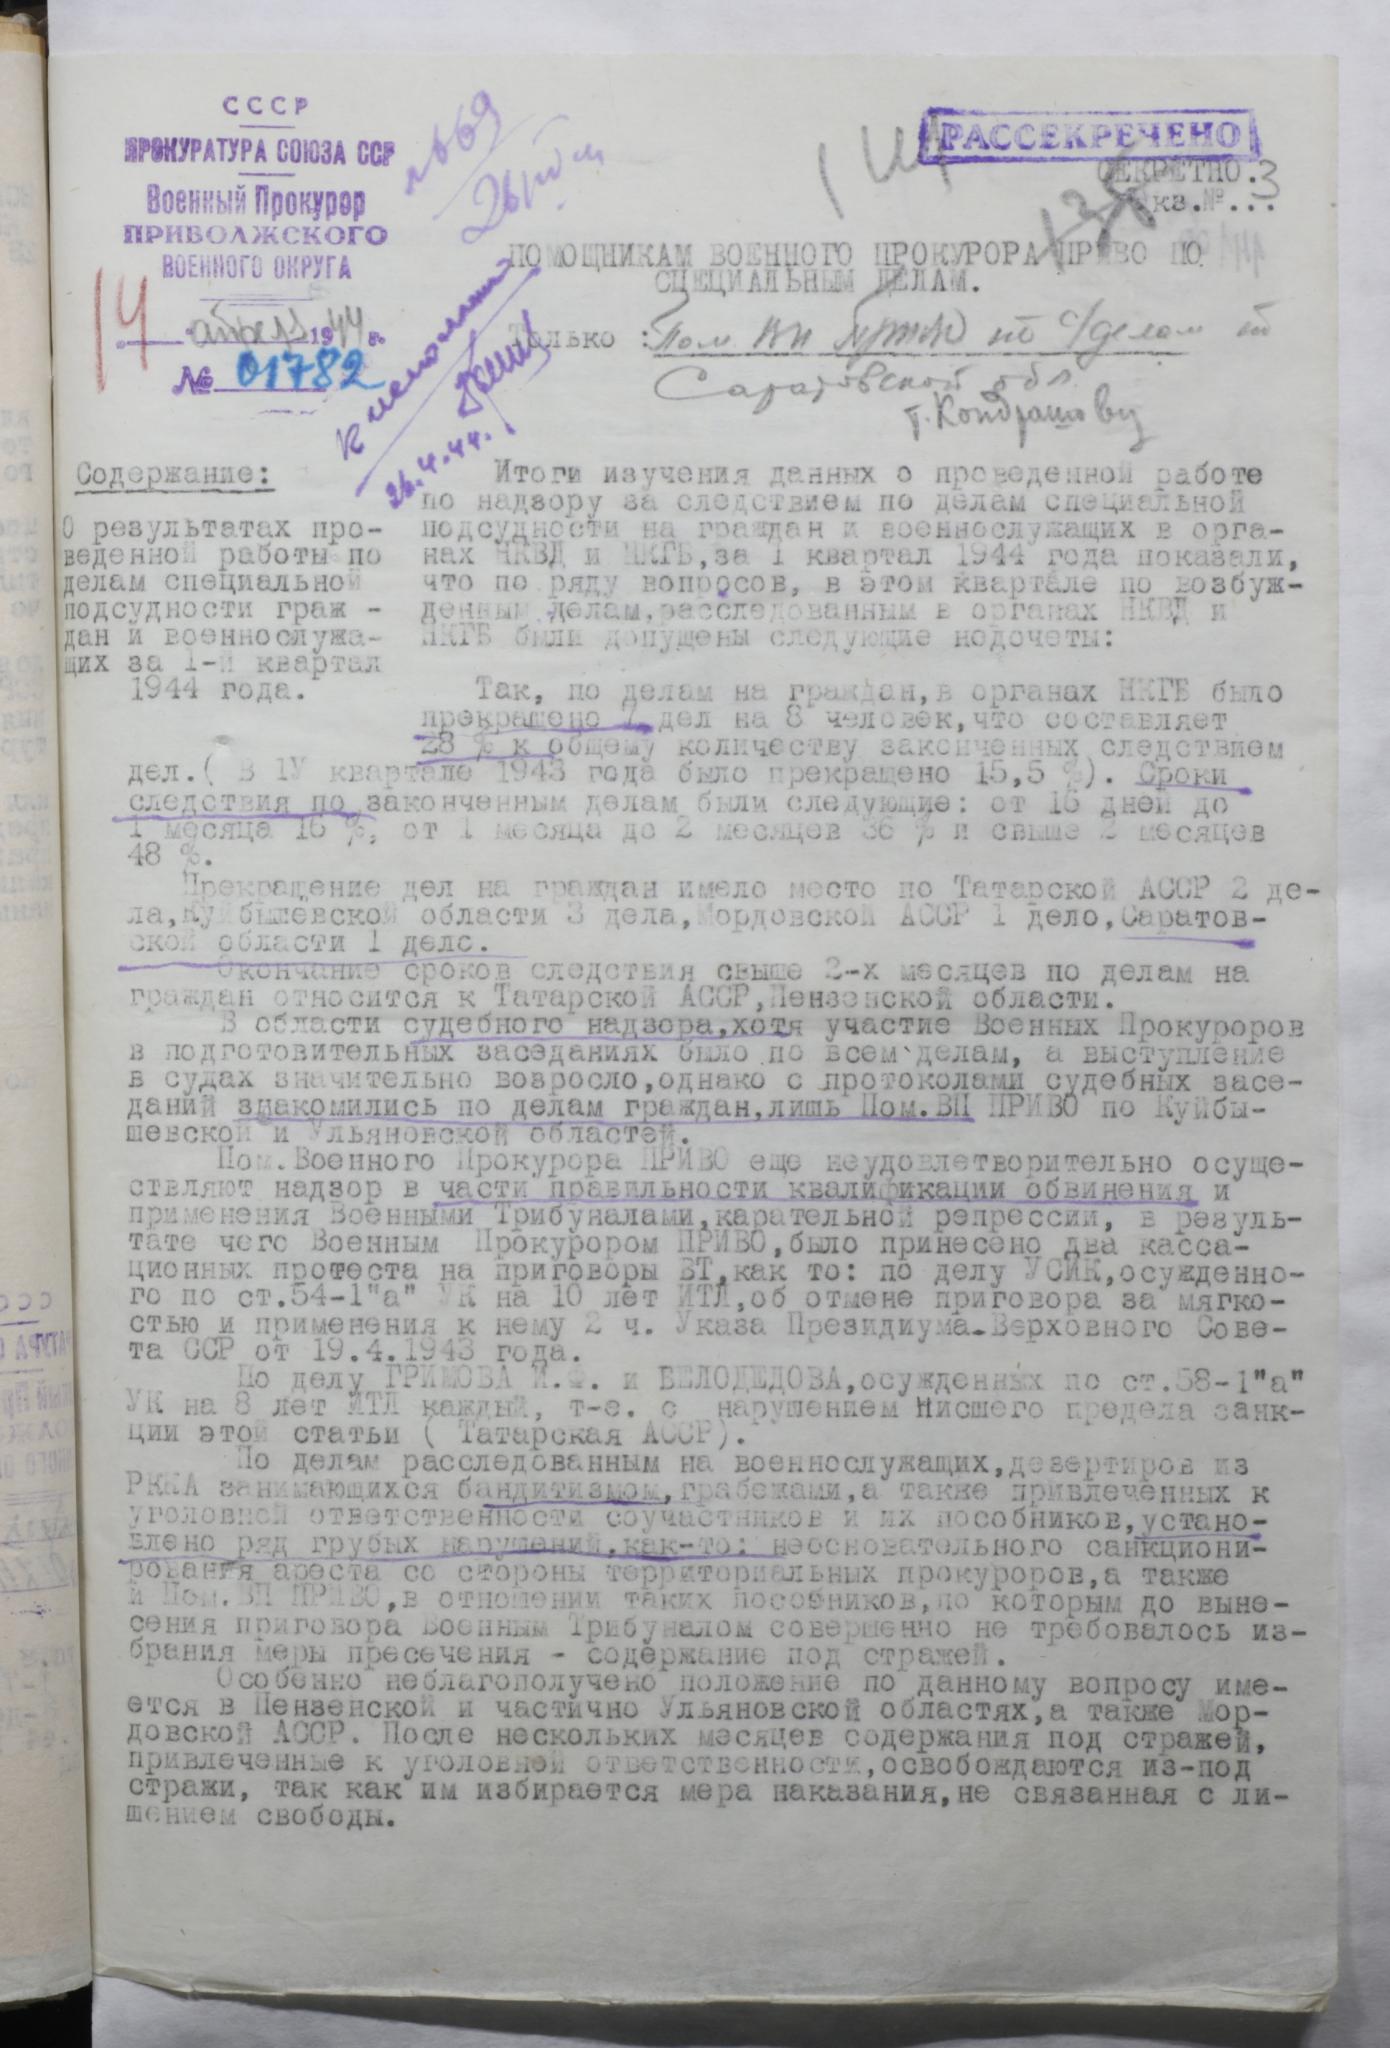 СССР
ПРОКУРАТУРА СОЮЗА ССР
Военный Прокурор
ПРИВОЛЖСКОГО
ВОЕННОГО ОКРУГА
14 апреля 1944 г.
№ 01782
РАССЕКРЕЧЕНО
СЕКРЕТНО.
кз.№...3
ПОМОЩНИКАМ ВОЕННОГО ПРОКУРОРА ПРИВО ПО
СПЕЦИАЛЬНЫМ ДЕЛАМ.
Только: Пом ВП ПРИВО по с/делам по
Саратовской обл.
т. Кондрашову
26.4.44.
Содержание:
О результатах про-
веденной работы по
делам специальной
подсудности граж -
дан и военнослужа-
щих за 1-й квартал
1944 года.
Итоги изучения данных о проведенной работе
по надзору за следствием по делам специальной
подсудности на граждан и военнослужащих в орга-
нах НКВД и НКГБ,за 1 квартал 1944 года показали,
что по ряду вопросов, в этом квартале по возбуж-
денным делам,расследованным в органах НКВД и
НКГБ были допущены следующие недочеты:
Так, по делам на граждан,в органах НКГБ было
прекращено 7 дел на 8 человек,что составляет
28 % к общему количеству законченных следствием
дел.( В 1У квартале 1943 года было прекращено 15,5 %). Сроки
следствия по законченным делам были следующие: от 15 дней до
1 месяца 16 %, от 1 месяца до 2 месяцев 36 % и свыше 2 месяцев
48 %.
Прекращение дел на граждан имело место по Татарской АССР 2 де-
ла,Куйбышевской области 3 дела,Мордовской АССР 1 дело,Саратов-
ской области 1 дело.
Окончание сроков следствия свыше 2-х месяцев по делам на
граждан относится к Татарской АССР,Пензенской области.
В области судебного надзора,хотя участие Военных Прокуроров
в подготовительных заседаниях было по всем делам, а выступление
в судах значительно возросло,однако с протоколами судебных засе-
даний знакомились по делам граждан,лишь Пом.ВП ПРИВО по Куйбы-
шевской и Ульяновской областей.
Пом.Военного Прокурора ПРИВО еще неудовлетворительно осуще-
ствляют надзор в части правильности квалификации обвинения и
применения Военными Трибуналами,карательной репрессии, в резуль-
тате чего Военным Прокурором ПРИВО,было принесено два касса-
ционных протеста на приговоры ВТ,как то: по делу УСИК,осужденно-
го по ст.54-1"а" УК на 10 лет ИТЛ,об отмене приговора за мягко-
стью и применения к нему 2 ч. Указа Президиума Верховного Сове-
та ССР от 19.4.1943 года.
По делу ГРИМОВА И.Ф. и БЕЛОДЕДОВА,осужденных по ст.58-1"а"
УК на 8 лет ИТЛ каждый, т-е. с нарушением Нисшего предела санк-
ции этой статьи ( Татарская АССР).
По делам расследованным на военнослужащих,дезертиров из
РККА занимающихся бандитизмом,грабежами,а также привлеченных к
уголовной ответственности соучастников и их пособников,устано-
влено ряд грубых нарушений,как-то: неосновательного санкциони-
рования ареста со стороны территориальных прокуроров,а также
и Пом.ВП ПРИВО,в отношении таких пособников,по которым до выне-
сения приговора Военным Трибуналом совершенно не требовалось из-
брания меры пресечения - содержание под стражей.
Особенно неблагополучено положение по данному вопросу име-
ется в Пензенской и частично Ульяновской областях,а также Мор-
довской АССР. После нескольких месяцев содержания под стражей,
привлеченные к уголовной ответственности,освобождаются из-под
стражи, так как им избирается мера наказания,не связанная с ли-
шением свободы.